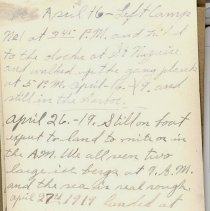 April 16 - Left Camp
No 1 at 2 45 P.M. and hiked
to the docks at St Nazaire
and walked up the gang plank
at 5 P.M. April 16 - 19. and
still in the harbor.
April 26. - 19. Still on boat
expect to land to
the A.M. We all seen two
large ice bergs at 7. A.M.
and the sea is real rough.
april 27th 1919 landed at